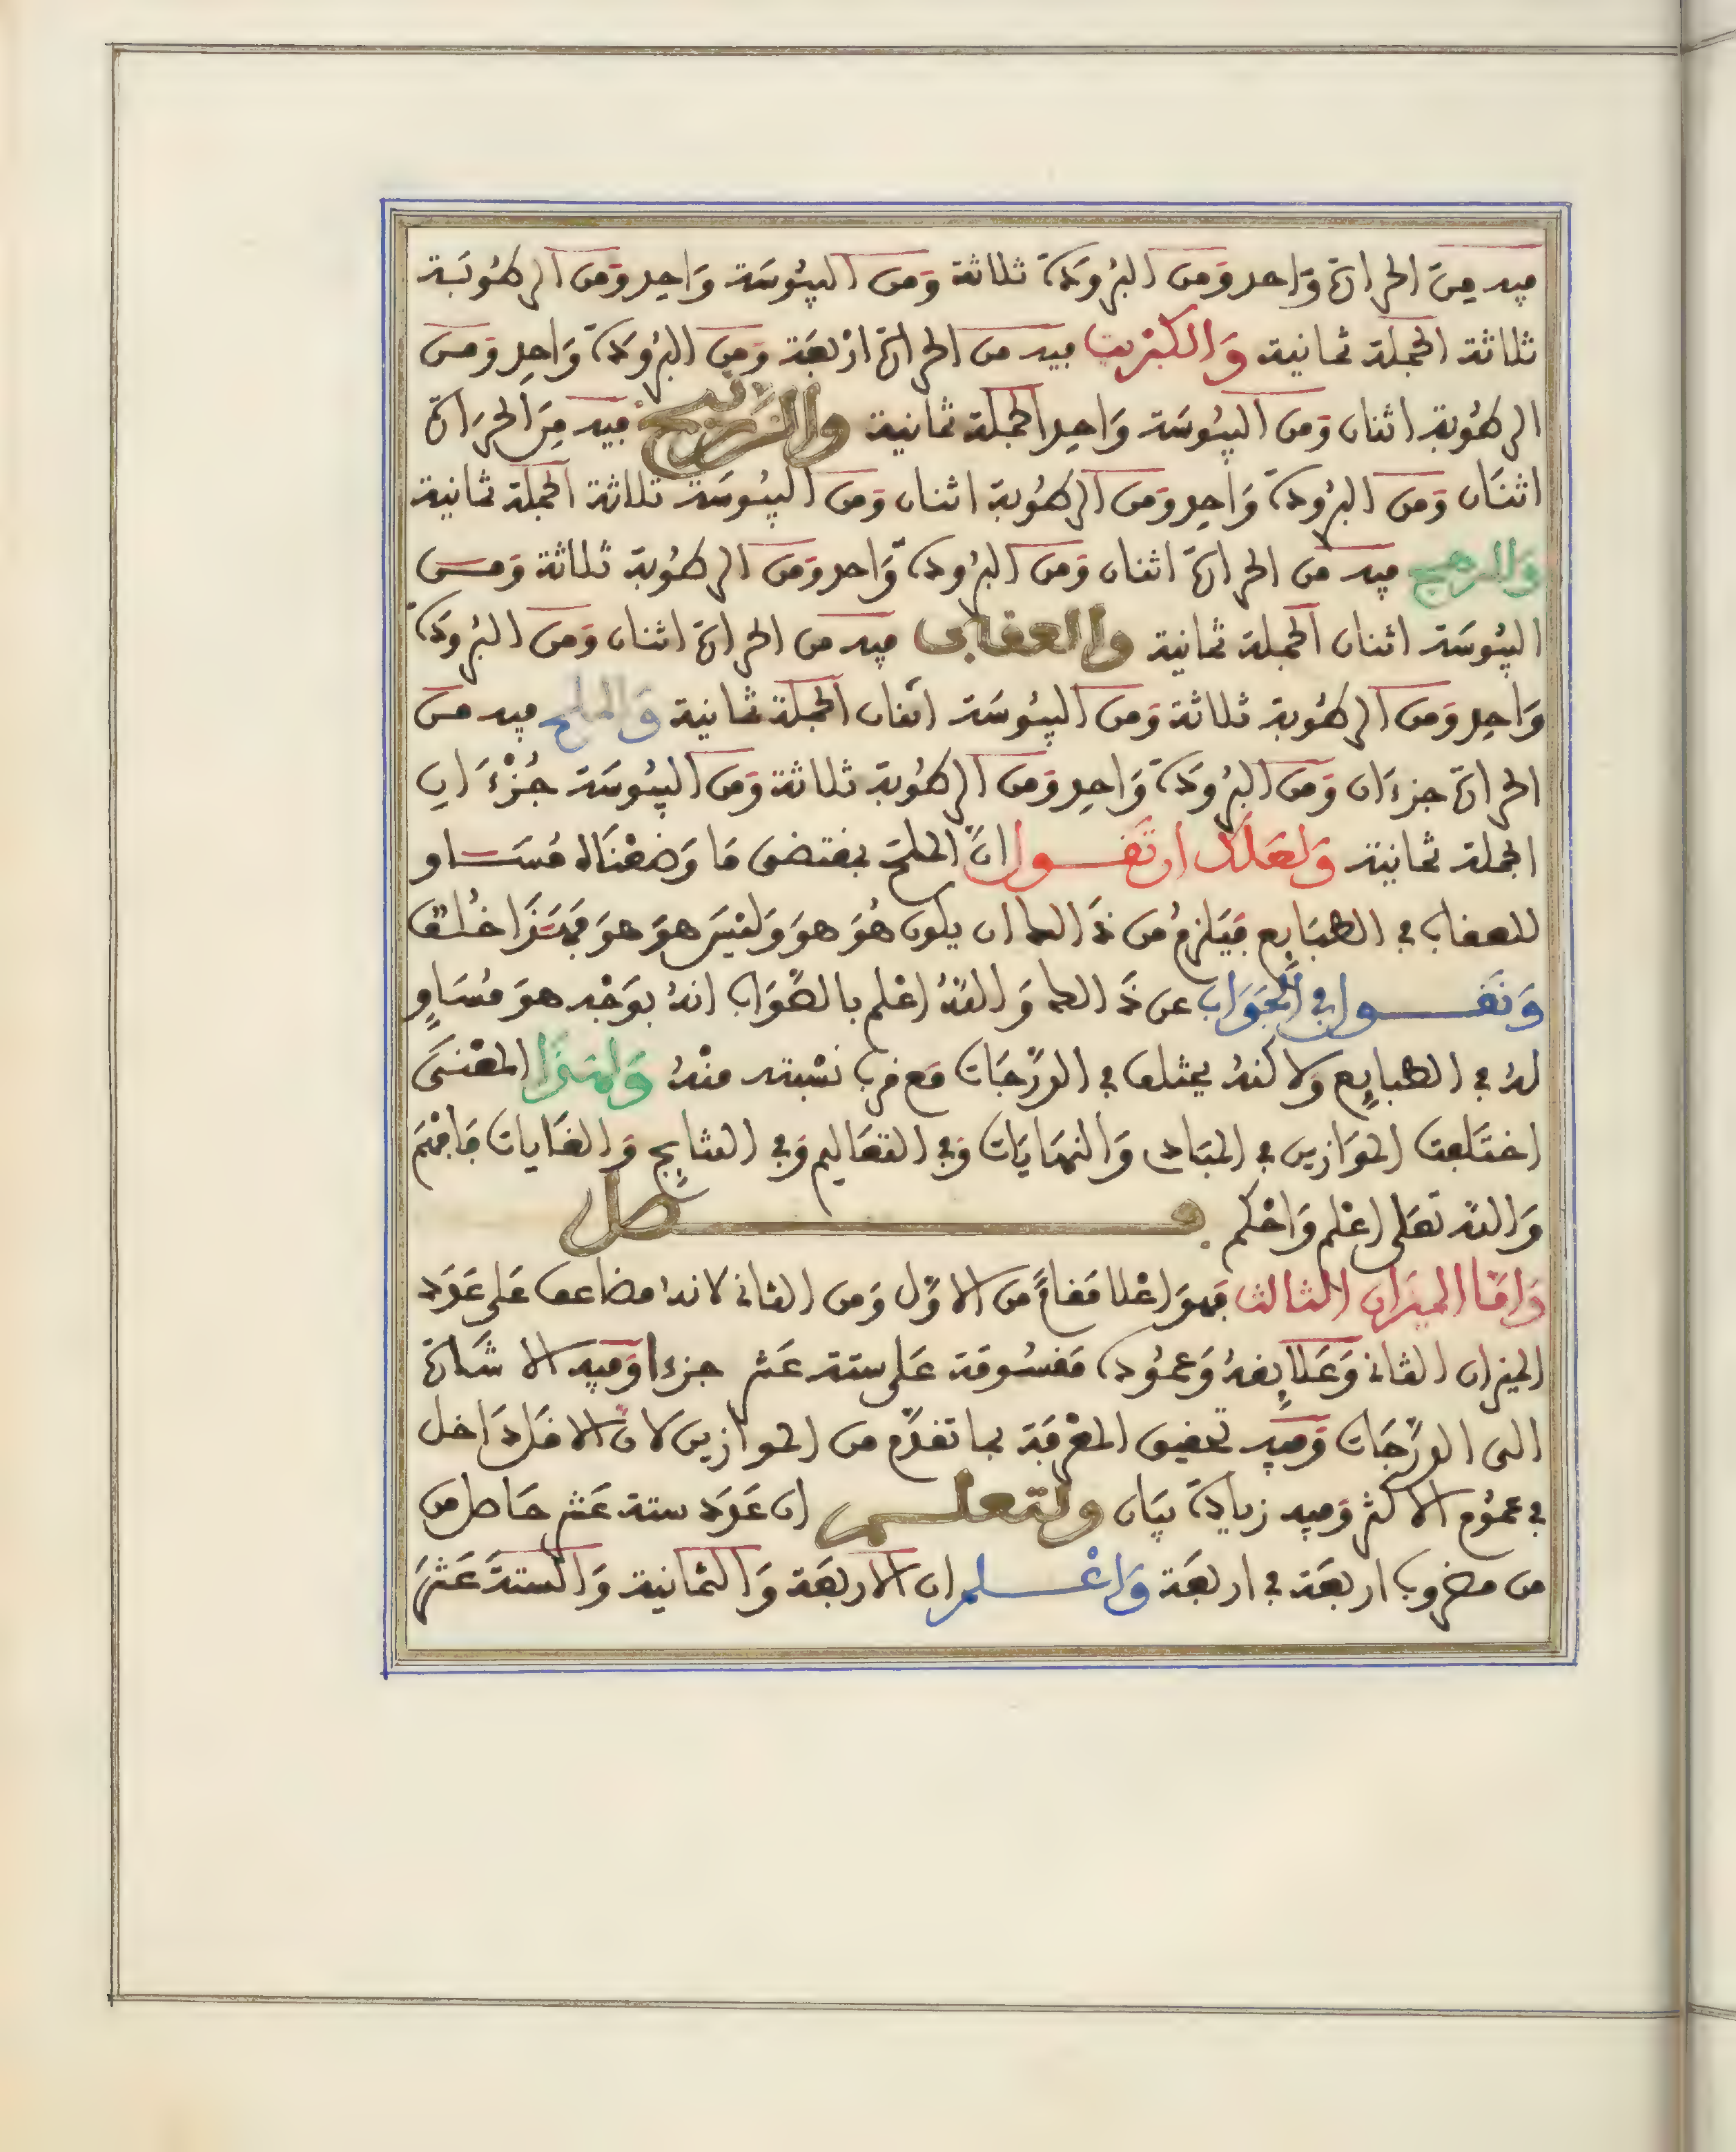 فيه من الحرارة واحد ومن البرودة ثلاثة ومن اليبوسة واحد ومن الرطوبة
ثلاثة الجملة ثمانية والكبريت فيه من الحرارة اربعة ومن البرودة واحد ومن
الرطوبة اثنان ومن اليبوسة واحد الجملة ثمانية والزرنيخ فيه من الحرارة
اثنان ومن البرودة واحد ومن الرطوبة اثنان ومن اليبوسة ثلاثة الجملة ثمانية
فيه من الحرارة اثنان ومن البرودة واحد ومن الرطوبة ثلاثة ومن
اليبوسة اثنان الجملة ثمانية والعقاب فيه من الحرارة اثنان ومن البرودة
واحد ومن الرطوبة ثلاثة ومن اليبوسة اثنان الجملة ثمانية والملح فيه من
الحرارة جزءان ومن البرودة واحد ومن الرطوبة ثلاثة ومن اليبوسة جزءان
الجملة ثمانية ولعلك ان تقول ان الملح بمقتضى ما وضعناه مساو
للعقاب في الطبايع فيلزم من ذالك ان يكون هو هو وليس هو هو فهذا خلف
ونقول في الجواب عن ذالك والله اعلم بالصواب انه بوجه هو مساو
له في الطبايع ولاكنه يختلف في الدرجات مع قرب نسبته منه ولهذا المعنى
اختلفت الموازين في المبادى والنهايات وفي التعاليم وفي النتايج والغايات فافهم
والله تعلى اعلم واحكم فصل
واما الميزان الثالث فهو اعلا مقاما من الاول ومن الثانى لانه مضاعف على عدد
الميزان الثانى وعلايقه وعموده مقسومة على ستة عشر جزءا وفيه الاشارة
الى الدرجات وفيه تحقيق المعرفة بما تقدم من الموازين لان الاقل داخل
في عموم الاكثر وفيه زيادة بيان ولتعلم ان عدد ستة عشر حاصل من
من مضروب اربعة في اربعة واعلم ان الاربعة والثمانية والستة عشر